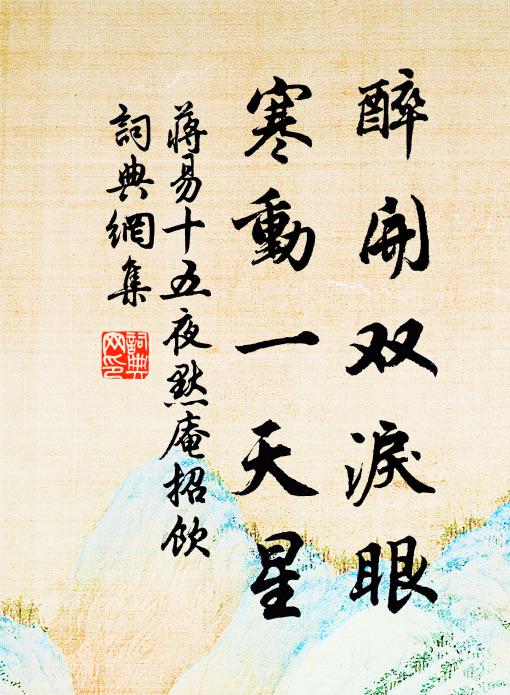 醉開双淚眼
寒動一天星
蔣易十五夜默庵招飲
詞典網集
詞典网印